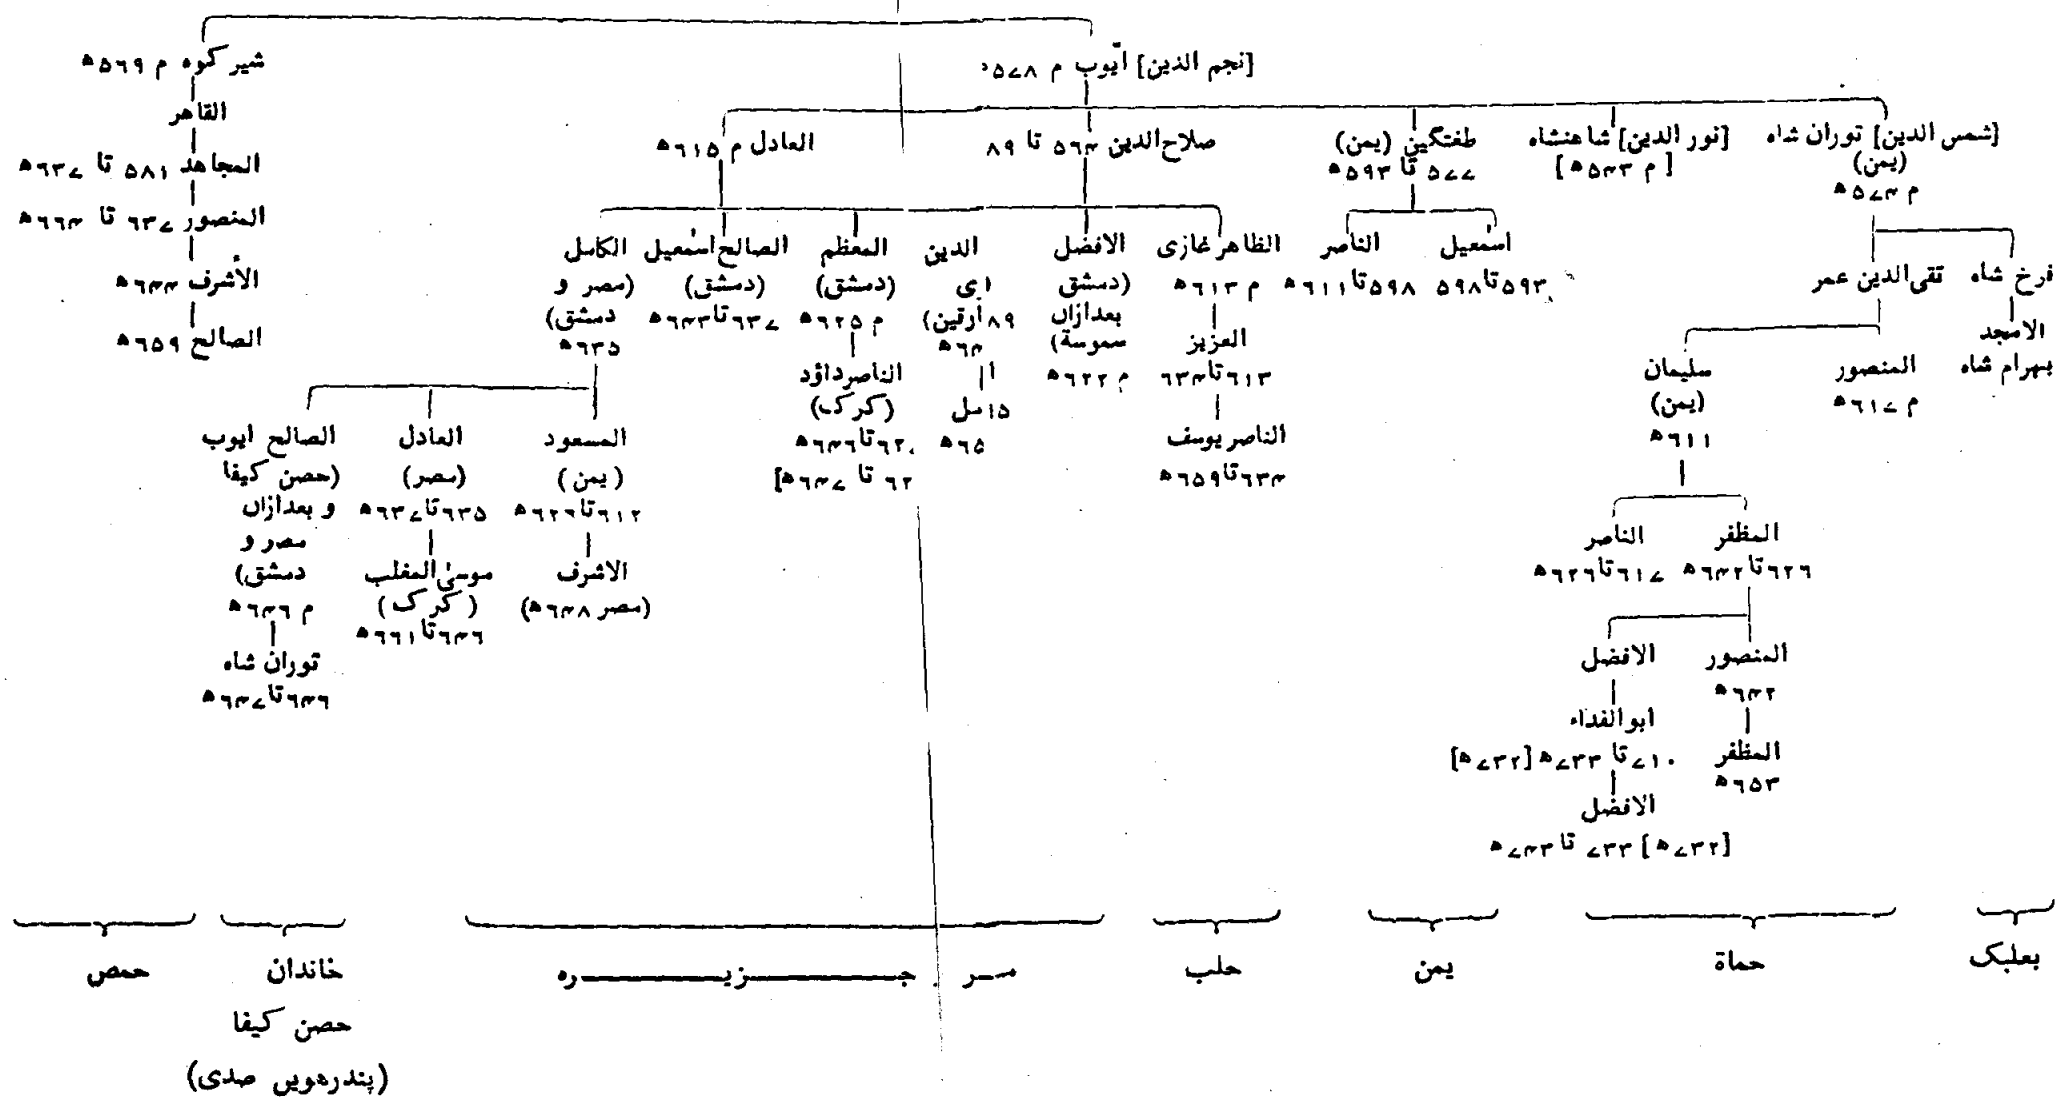 [نجم الدین] ایّوب م ۵۷۸
شیر کوہ م ۵۶۹ھ
القاهر
المجاهد ۵۸۱ تا ۶۳۷ھ
المنصور ۶۳۷ تا ۶۶۴ھ
الأشرف ۶۴۴ھ
الصالح ۶۵۹ھ
[شمس الدین] توران شاہ
(یمن)
م ۵۷۴ھ
[نور الدین] شاهنشاہ
[م ۵۴۳ھ]
طغتگین (یمن)
۵۷۷ تا ۵۹۳ھ
صلاح‌الدین ۵۶۴ تا ۸۹
العادل م ۶۱۵ھ
فرخ شاہ
الامجد
بہرام شاہ
تقی‌الدین عمر
المنصور
م ۶۱۷ھ
سلیمان
(یمن)
۶۱۱ھ
المظفر
۶۲۶ تا ۶۴۲ھ
الناصر
۶۱۷ تا ۶۲۶ھ
المنصور
۶۴۲ھ
المظفر
۶۵۳ھ
الافضل
ابوالفداء
۷۱۰ تا ۷۳۳ھ [۷۳۲ھ]
الافضل
[۷۳۲ھ] ۷۳۳ تا ۷۴۳ھ
اسمٰعیل
۵۹۳ تا ۵۹۸
الناصر
۵۹۸ تا ۶۱۱ھ
الظاهر غازی
م ۶۱۳ھ
العزیز
۶۱۳ تا ۶۳۴
الناصر یوسف
۶۳۴ تا ۶۵۹ھ
الافضل
(دمشق
بعدازاں
سموسة)
م ۶۲۲ھ
الدین
ای
۸۹ ارقین)
۶۴ھ
ا
۱۵ سل
۶۵ھ
المعظم
(دمشق)
م ۶۲۵ھ
الناصر داؤد
(کرک)
۶۲ تا ۶۴۶ھ
۶۲ تا ۶۴۷ھ]
الصالح اسمٰعیل
(دمشق)
۶۳۷ تا ۶۴۳ھ
الکامل
(مصر و
دمشق)
۶۳۵ھ
المسعود
(یمن)
۶۱۲ تا ۶۲۶ھ
الاشرف
(مصر ۶۴۸ھ)
العادل
(مصر)
۶۳۵ تا ۶۳۷ھ
موسیٰ المغلب
(کرک)
۶۴۶ تا ۶۶۱ھ
الصالح ایوب
(حصن کیفا
و بعدازاں
مصر و
دمشق)
م ۶۴۶ھ
توران شاہ
۶۴۶ تا ۶۴۷ھ
بعلبک
حماۃ
یمن
حلب
مــر جـــزیـــرہ
خاندان
حصن کیفا
(پندرھویں صدی)
حمص